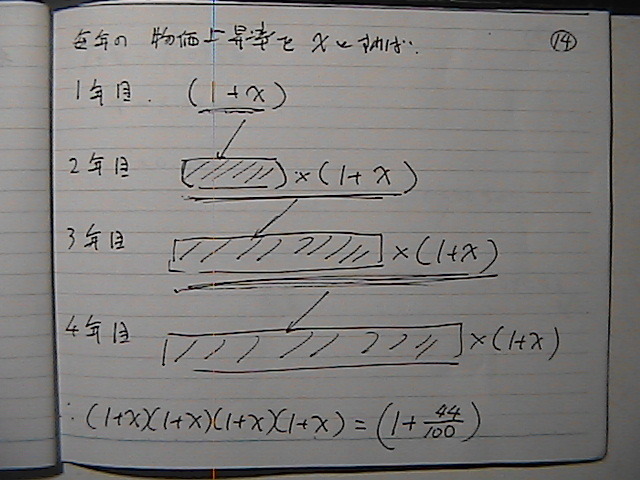 毎年の 物価上昇率を xとすれば、
⑭
1年目. (1+x)
2年目 ( )×(1+x)
3年目 [ ]×(1+x)
4年目 [ ]×(1+x)
∴ (1+x)(1+x)(1+x)(1+x) = (1+44/100)